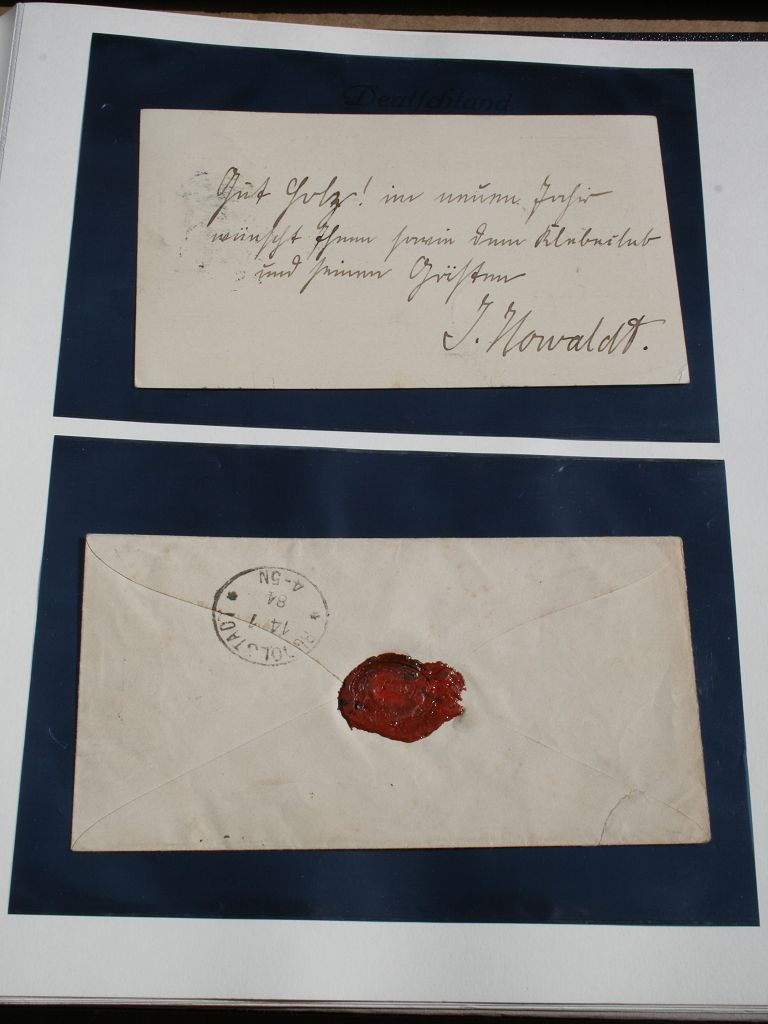 Deutschland
Gut Holz! im neuen Jahr
wünscht Ihnen sowie dem Klebeclub
und seinen Gästen
J. Howaldt.
RUDOLSTADT
14 1
84
4-5N